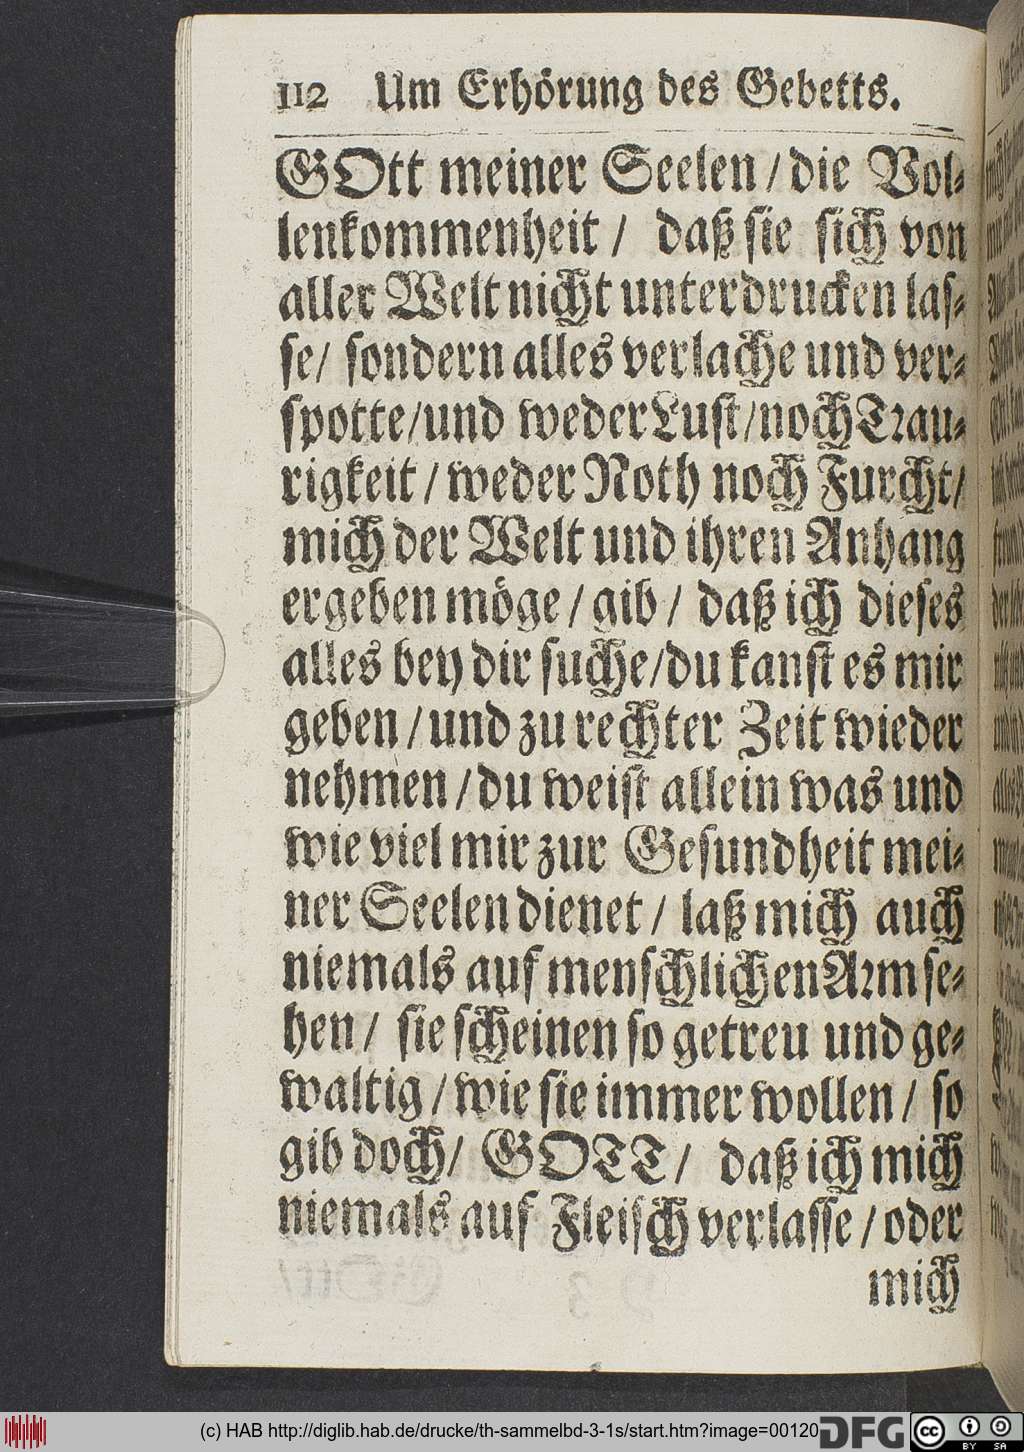 112 Um Erhörung des Gebetts.
GOtt meiner Seelen / die Vol-
lenkommenheit / daß sie sich von
aller Welt nicht unterdrucken las-
se / sondern alles verlache und ver-
spotte / und weder Lust / noch Trau-
rigkeit / weder Noth noch Furcht /
mich der Welt und ihren Anhang
ergeben möge / gib / daß ich dieses
alles bey dir suche / du kanst es mir
geben / und zu rechter Zeit wieder
nehmen / du weist allein was und
wie viel mir zur Gesundheit mei-
ner Seelen dienet / laß mich auch
niemals auf menschlichen Arm se-
hen / sie scheinen so getreu und ge-
waltig / wie sie immer wollen / so
gib doch / GOTT / daß ich mich
niemals auf Fleisch verlasse / oder
mich
(c) HAB http://diglib.hab.de/drucke/th-sammelbd-3-1s/start.htm?image=00120
DFG
cc BY SA